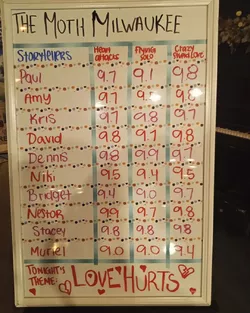 THE MOTH MILWAUKEE
STORYTELLERS Heart attacks Flying Solo Crazy Stupid Love
Paul 9.7 9.1 9.8
Amy 9.7 9.8
Kris 9.7 9.8 9.8
David 9.8 9.7 9.8
Dennis 9.8 9.9 9.7
Niki 9.5 9.4 9.5
Bridget 9.4 9.0 9.7
Nestor 9.9 9.7 9.8
Stacey 9.8 9.8 9.8
Muriel 9.0 9.0 9.4
TONIGHT'S THEME: LOVE HURTS